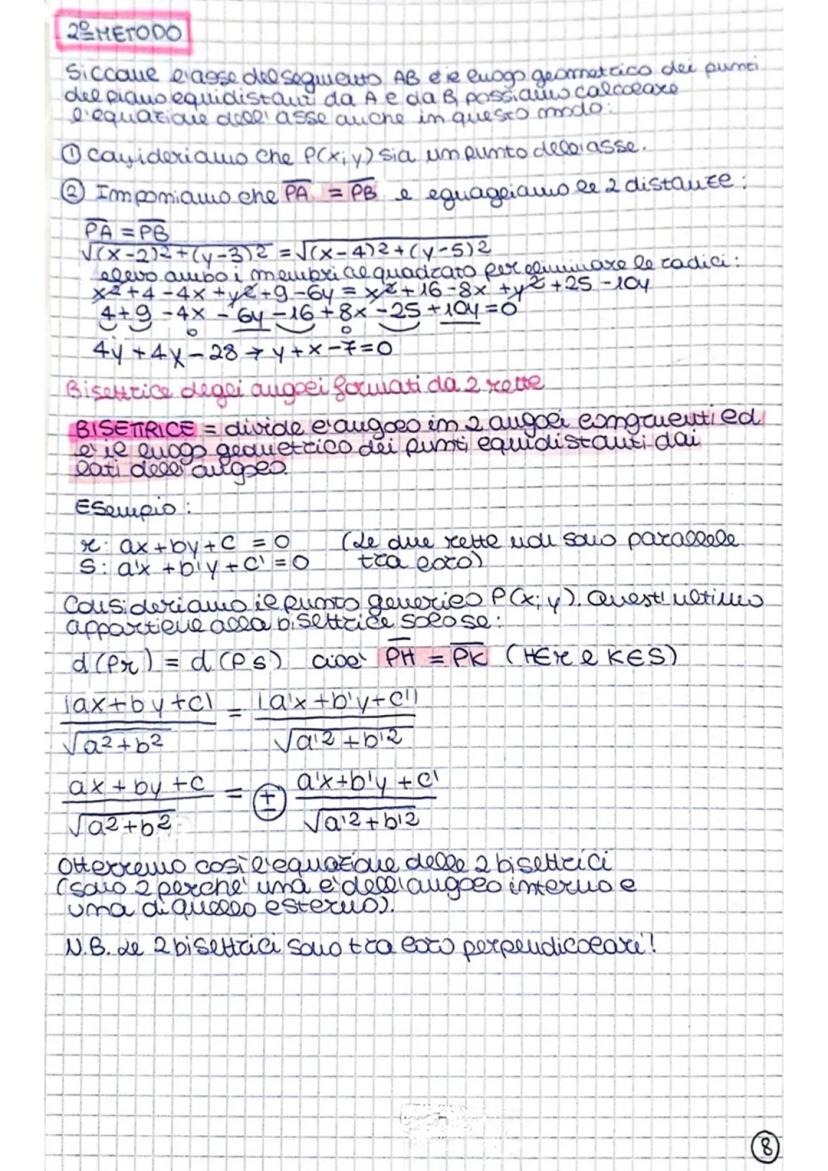 2° METODO
Siccome l'asse del segmento AB è il luogo geometrico dei punti
del piano equidistanti da A e da B, possiamo calcolare
l'equazione dell'asse anche in questo modo:
① Consideriamo che P(x;y) sia un punto dell'asse.
② Imponiamo che PA = PB e eguagliamo le 2 distanze:
PA = PB
√(x-2)2+(y-3)2 = √(x-4)2+(y-5)2
elevo ambo i membri al quadrato per eliminare le radici:
x2+4-4x+y2+9-6y = x2+16-8x+y2+25-10y
4+9-4x-6y-16+8x-25+10y=0
4y+4x-28→y+x-7=0
Bisettrice degli angoli formati da 2 rette
BISETTRICE = divide l'angolo in 2 angoli congruenti ed
è il luogo geometrico dei punti equidistanti dai
lati dell'angolo.
Esempio:
r: ax+by+c = 0 (Le due rette non sono parallele
S: a'x+b'y+c'=0 tra loro)
Consideriamo il punto generico P(x;y). Quest'ultimo
appartiene alla bisettrice solo se:
d(Pr) = d(Ps) cioè PH = PK (H∈r e K∈S)
|ax+by+c| = |a'x+b'y+c'|
√a2+b2 √a'2+b'2
ax+by+c = ± a'x+b'y+c'
√a2+b2 √a'2+b'2
Otterremo così l'equazione delle 2 bisettrici
(sono 2 perché una è dell'angolo interno e
una di quello esterno).
N.B. Le 2 bisettrici sono tra loro perpendicolari!
8